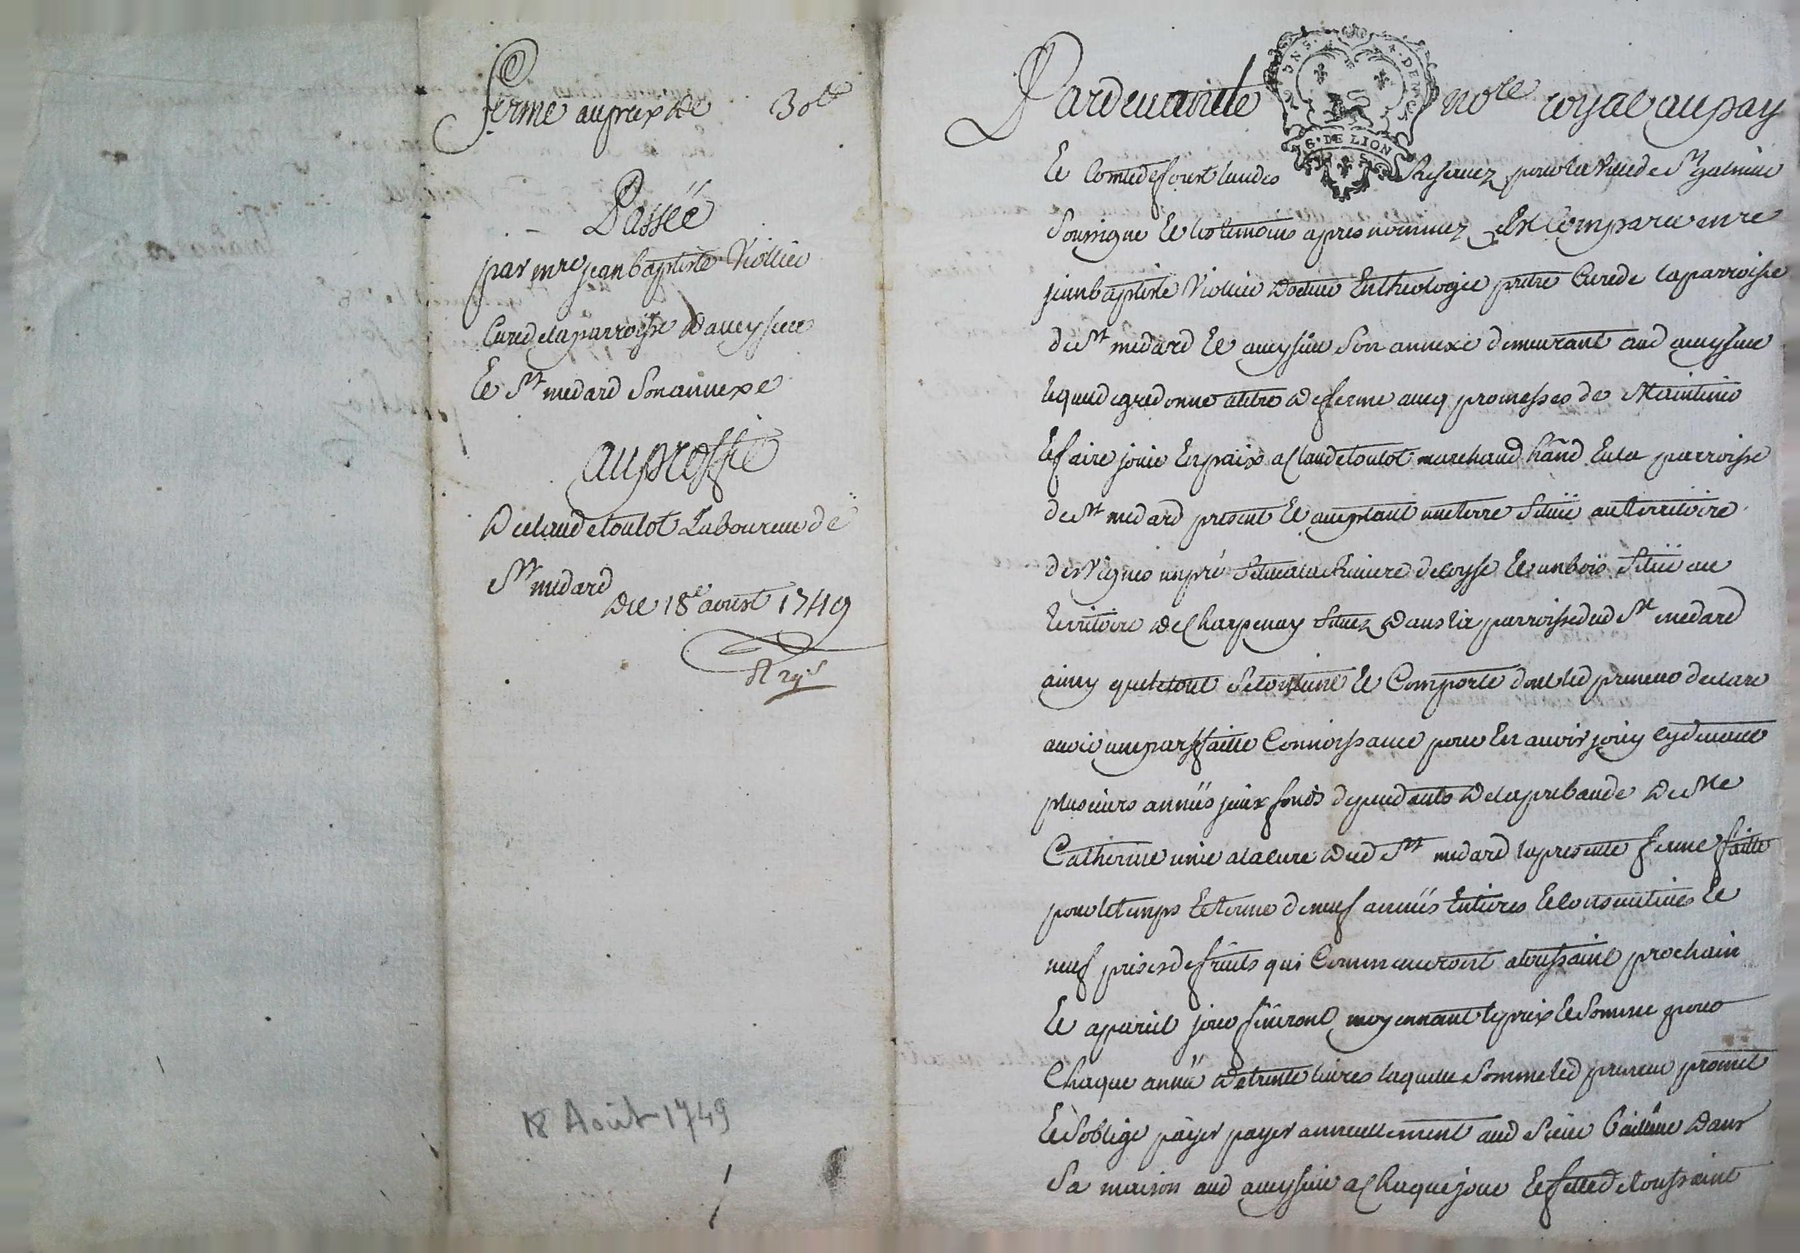 ferme au prix de 30ll
Passée
par mre jean baptiste Viollier
Curé de la parroisse d'aveysieu
Et St medard son annexe
au proffit
De claude toulot Laboureur de
St medard
Du 18e aoust 1749
18 Août 1749
Pardevant le nore royal au pay
Et Comté de fourt laudes Reservez pour la Ville de St galmier
Soussigné Et les temoins apres nommez Est Comparu mre
jean baptiste Viollier docteur En theologie pretre Curé de la parroisse
de St medard Et aveysieu Son annexe demeurant aud aveysieu
lequel de gré donne a titre de ferme avec promesses de Maintenir
Et faire jouir En paix a Claude toulot marchand hand En la parroisse
de St medard present Et acceptant une terre Située au territoire
des Vignes un pré Situé a la Riviere de coyse Et un bois Situé au
territoire de Charpenay Situez Dans lad parroisse dud St medard
ainsy que le tout Se Contient Et Comporte dont led preneur declare
avoir une parffaitte Connoissance pour En avoir jouy cy devant
plusieurs années iceux fonds dependants de la prebande de Ste
Catherine unie a la cure dud St medard la presente ferme faitte
pour le temps Et terme de neuf années Entieres Et Consecutives Et
neuf prises de fruits qui Commenceront a toussaint prochain
Et a pareil jour finiront moyennant le prix Et Somme pour
Chaque année de trente livres laquelle Somme led preneur promet
Et s'oblige payer payer annuellement aud Sieur bailleur Dans
Sa maison aud aveysieu a Chaque jour Et fette de toussaint
G. DE LION